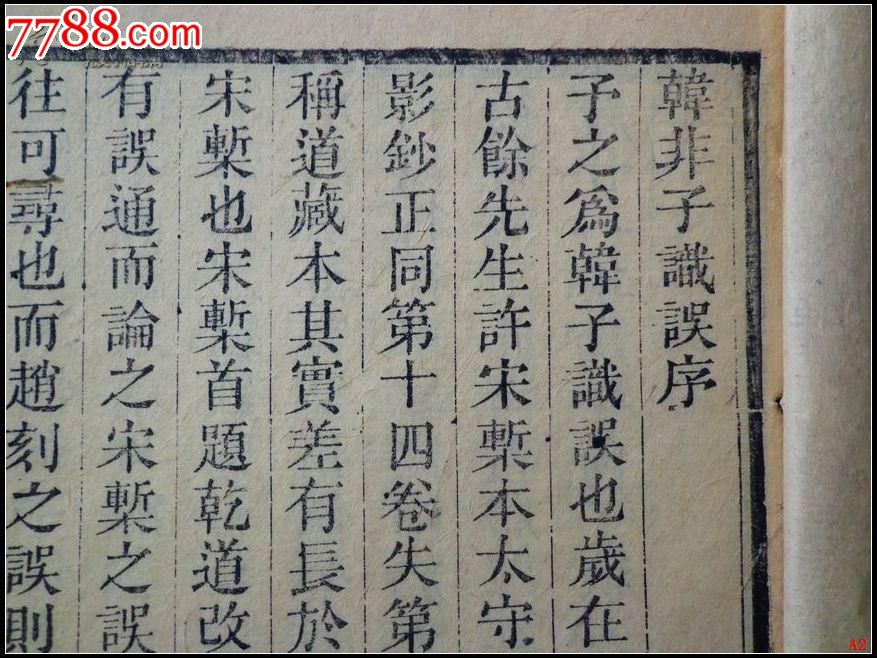 7788.com
韓非子識誤序
予之爲韓子識誤也歲在
古餘先生許宋槧本太守
影鈔正同第十四卷失第
稱道藏本其實差有長於
宋槧也宋槧首題乾道改
有誤通而論之宋槧之誤
往可尋也而趙刻之誤則
A2